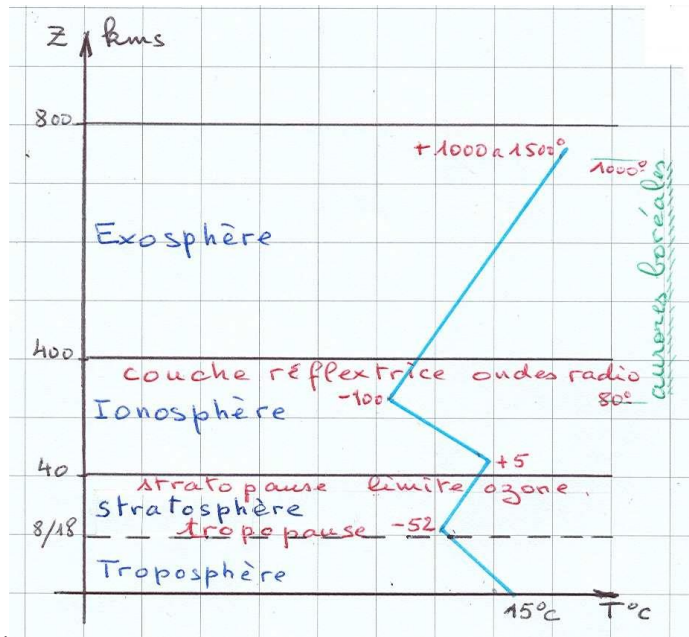 Z kms
800
+1000 a 1500°
1000°
Exosphère
aurores boréales
400
couche réflextrice ondes radio
Ionosphère
-100
80°
+5
40
stratopause limite ozone.
stratosphère
8/18
tropopause
-52
Troposphère
15°C
T°C